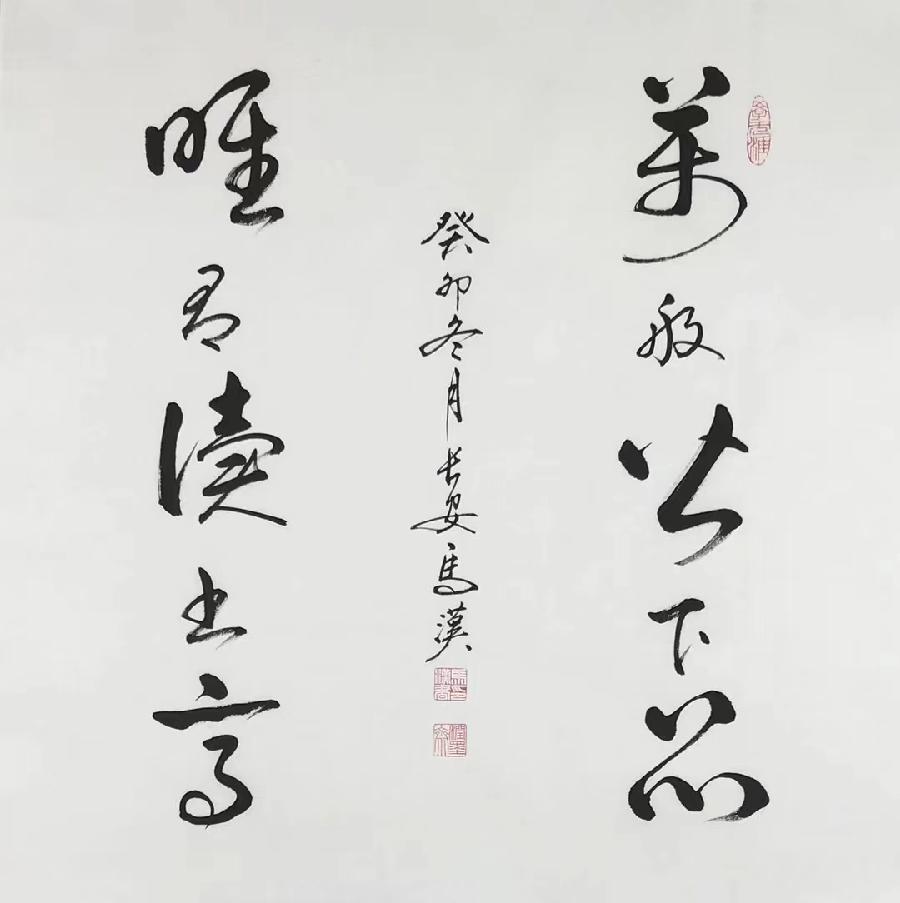 萬般皆下品
唯有讀書高
癸卯冬月長安馬漢